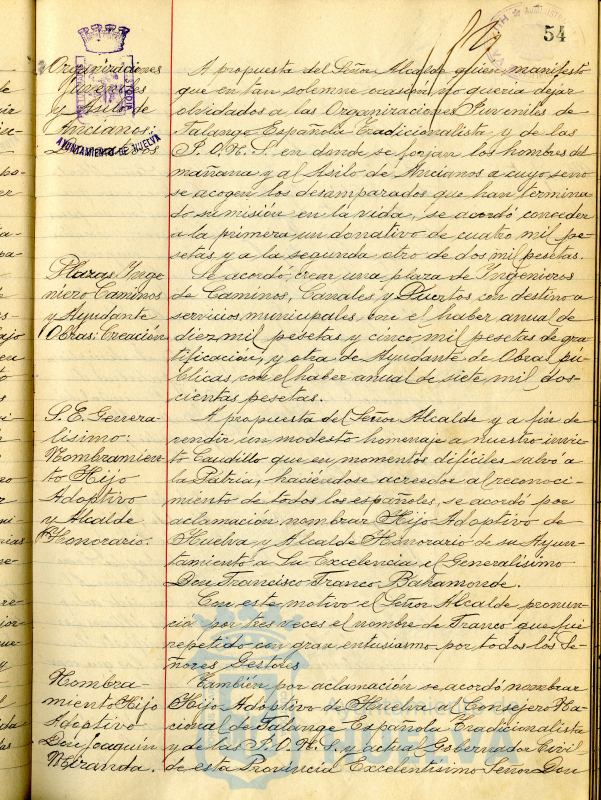 54
Organizaciones
Juveniles
y Asilo de
Ancianos:
AYUNTAMIENTO DE HUELVA
A propuesta del Señor Alcalde quien manifestó
que en tan solemne ocasión, no quería dejar
olvidados a las Organizaciones Juveniles de
Falange Española Tradicionalista y de las
J.O.N.S. en donde se forjan los hombres del
mañana y al Asilo de Ancianos a cuyo seno
se acogen los desamparados que han termina
do su misión en la vida, se acordó conceder
a la primera un donativo de cuatro mil pe
setas y a la segunda otro de dos mil pesetas.
Plazas Inge
niero Caminos
y Ayudante
Obras: Creación
Se acordó, crear una plaza de Ingenieros
de Caminos, Canales, y Puertos con destino a
servicios municipales, con el haber anual de
diez mil pesetas y cinco mil pesetas de gra
tificación, y otra de Ayudante de Obras pú
blicas, con el haber anual de siete mil dos-
cientas pesetas.
S. E. Genera
lísimo:
Nombramien
to Hijo
Adoptivo
y Alcalde
Honorario.
A propuesta del Señor Alcalde y a fin de
rendir un modesto homenaje a nuestro invic
to Caudillo que en momentos difíciles salvó a
la Patria, haciéndose acreedor al reconoci
miento de todos los españoles, se acordó por
aclamación nombrar Hijo Adoptivo de
Huelva y Alcalde Honorario de su Ayun
tamiento a Su Excelencia el Generalísimo
Don Francisco Franco Bahamonde.
Con este motivo el Señor Alcalde pronun
cia por tres veces el nombre de Franco que fué
repetido con gran entusiasmo por todos los Se
ñores Gestores
Nombra-
miento Hijo
Adoptivo
Don Joaquín
Miranda.
También por aclamación se acordó nombrar
Hijo Adoptivo de Huelva al Consejero Na
cional de Falange Española Tradicionalista
y de las J.O.N.S. y actual Gobernador Civil
de esta Provincia Excelentísimo Señor Don
HUELVA